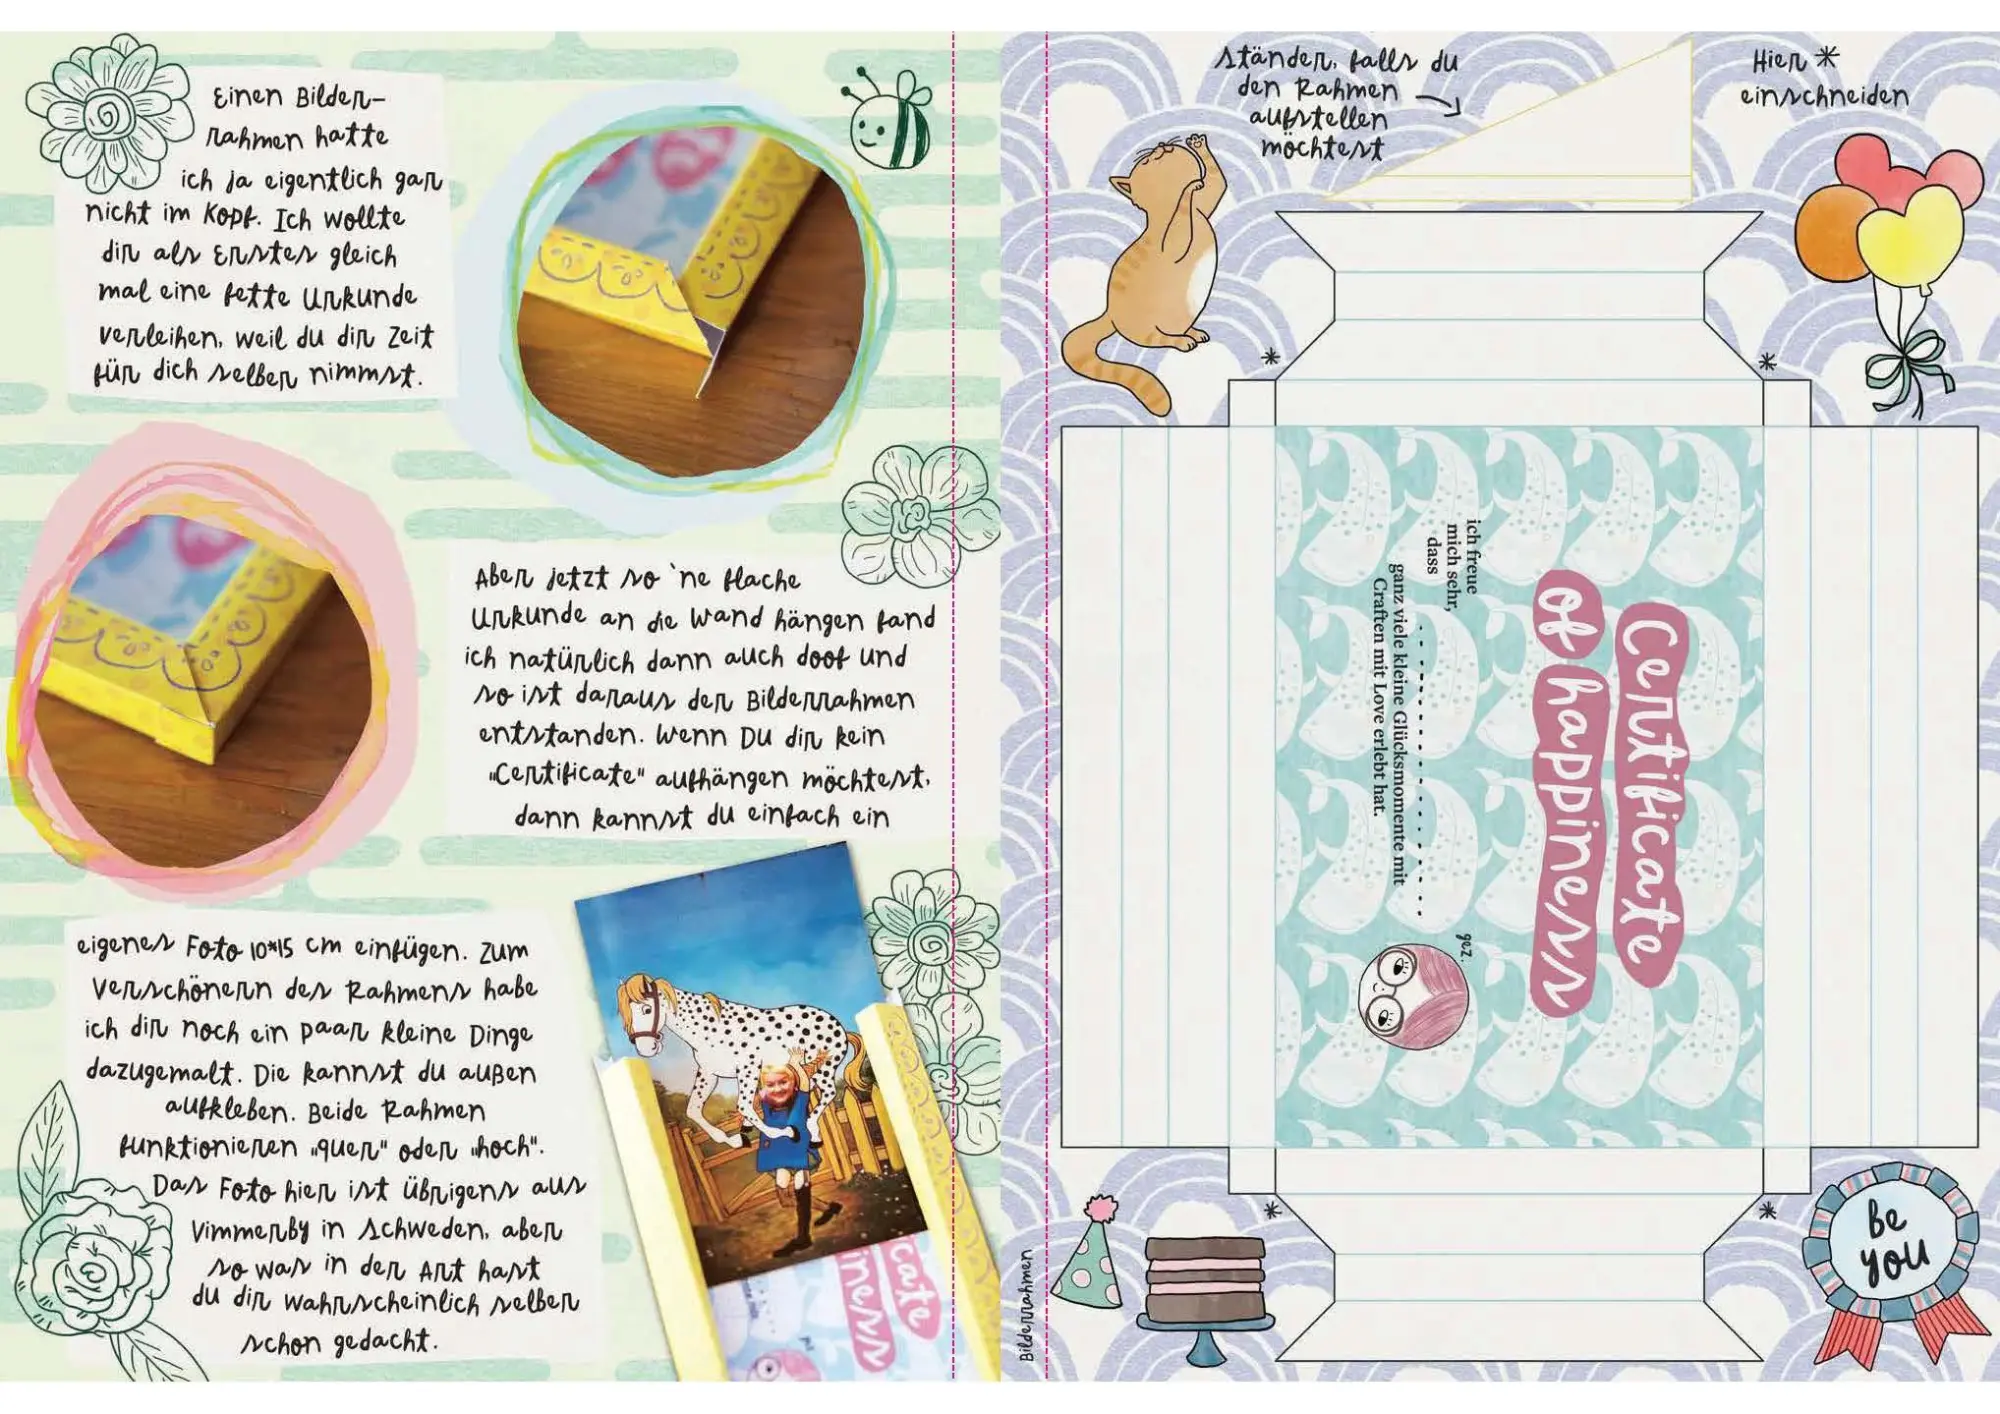 Einen Bilder-
rahmen hatte
ich ja eigentlich gar
nicht im Kopf. Ich wollte
dir als Erstes gleich
mal eine fette Urkunde
verleihen, weil du dir Zeit
für dich selber nimmst.
Aber jetzt so 'ne flache
Urkunde an die Wand hängen fand
ich natürlich dann auch doof und
so ist daraus der Bilderrahmen
entstanden. Wenn Du dir kein
„Certificate" aufhängen möchtest,
dann kannst du einfach ein
eigenes Foto 10*15 cm einfügen. Zum
Verschönern des Rahmens habe
ich dir noch ein paar kleine Dinge
dazugemalt. Die kannst du außen
aufkleben. Beide Rahmen
funktionieren „quer" oder „hoch".
Das Foto hier ist übrigens aus
Vimmerby in Schweden, aber
so was in der Art hast
du dir wahrscheinlich selber
schon gedacht.
icate
iness
Ständer, falls du
den Rahmen
aufstellen
möchtest
Hier *
einschneiden
*
*
Certificate
of happiness
ich freue
mich sehr,
dass
ganz viele kleine Glücksmomente mit
Craften mit Love erlebt hat.
gez.
*
*
Be
you
Bilderrahmen